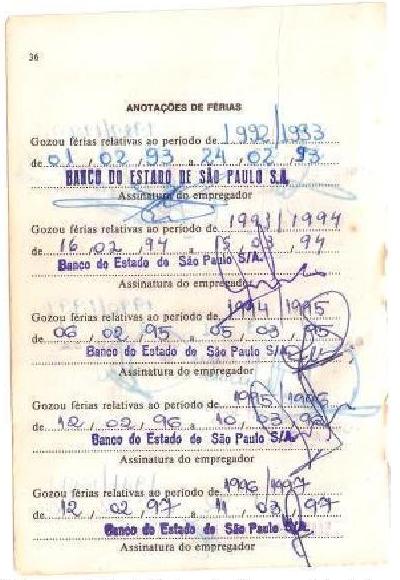 36
ANOTAÇÕES DE FÉRIAS
Gozou férias relativas ao período de 1992/1993
de 01, 02, 93 a 24, 02, 93
BANCO DO ESTADO DE SÃO PAULO S.A.
Assinatura do empregador
Gozou férias relativas ao período de 1993/1994
de 16, 02, 94 a 15, 03, 94
Banco do Estado de São Paulo S/A.
Assinatura do empregador
Gozou férias relativas ao período de 1994/1995
de 06, 02, 95 a 05, 03, 95
Banco do Estado de São Paulo S/A.
Assinatura do empregador
Gozou férias relativas ao período de 1995/1996
de 12, 02, 96 a 10, 03, 96
Banco do Estado de São Paulo S/A.
Assinatura do empregador
Gozou férias relativas ao período de 1996/1997
de 12, 02, 97 a 11, 03, 97
Banco do Estado de São Paulo S/A.
Assinatura do empregador